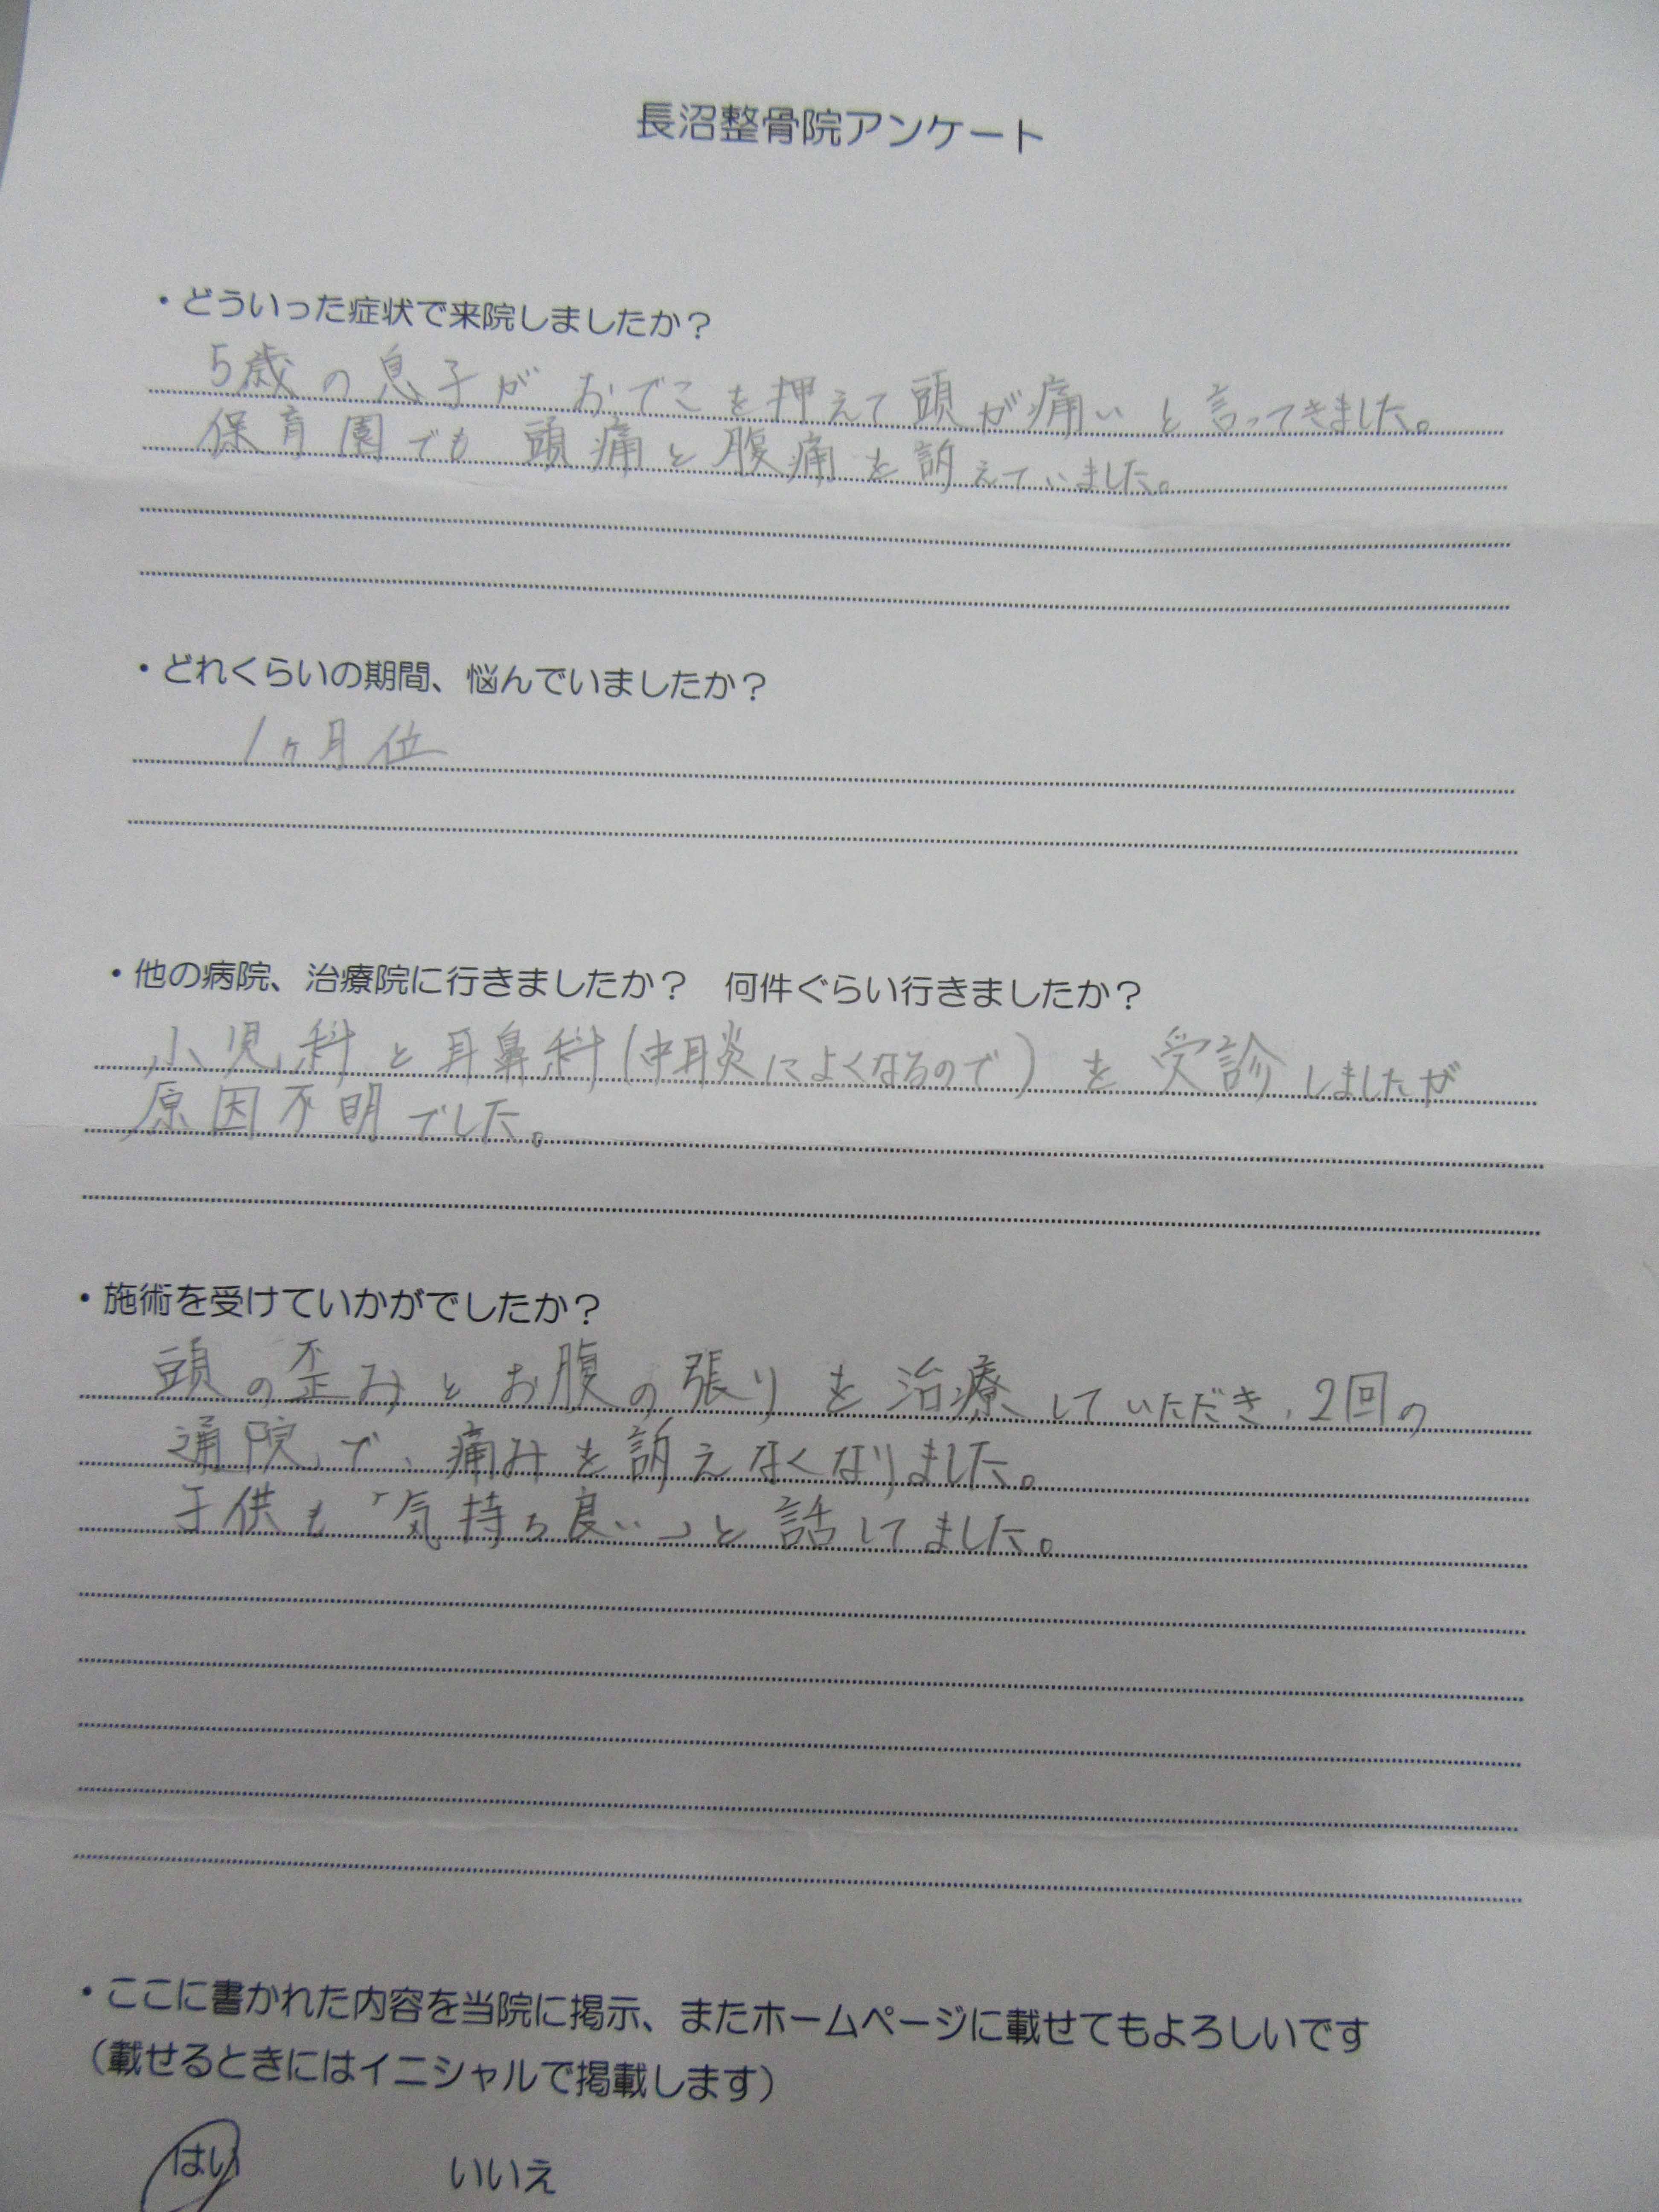 長沼整骨院アンケート
・どういった症状で来院しましたか？
5歳の息子が おでこを押えて頭が痛いと言ってきました。
保育園でも 頭痛と腹痛を訴えていました。
・どれくらいの期間、悩んでいましたか？
1ヶ月位
・他の病院、治療院に行きましたか？　何件ぐらい行きましたか？
小児科と耳鼻科(中耳炎によくなるので)を受診しましたが
原因不明でした。
・施術を受けていかがでしたか？
頭の歪みとお腹の張りを治療していただき、2回の
通院で、痛みを訴えなくなりました。
子供も「気持ち良い」と話してました。
・ここに書かれた内容を当院に掲示、またホームページに載せてもよろしいです
（載せるときにはイニシャルで掲載します）
はい　いいえ